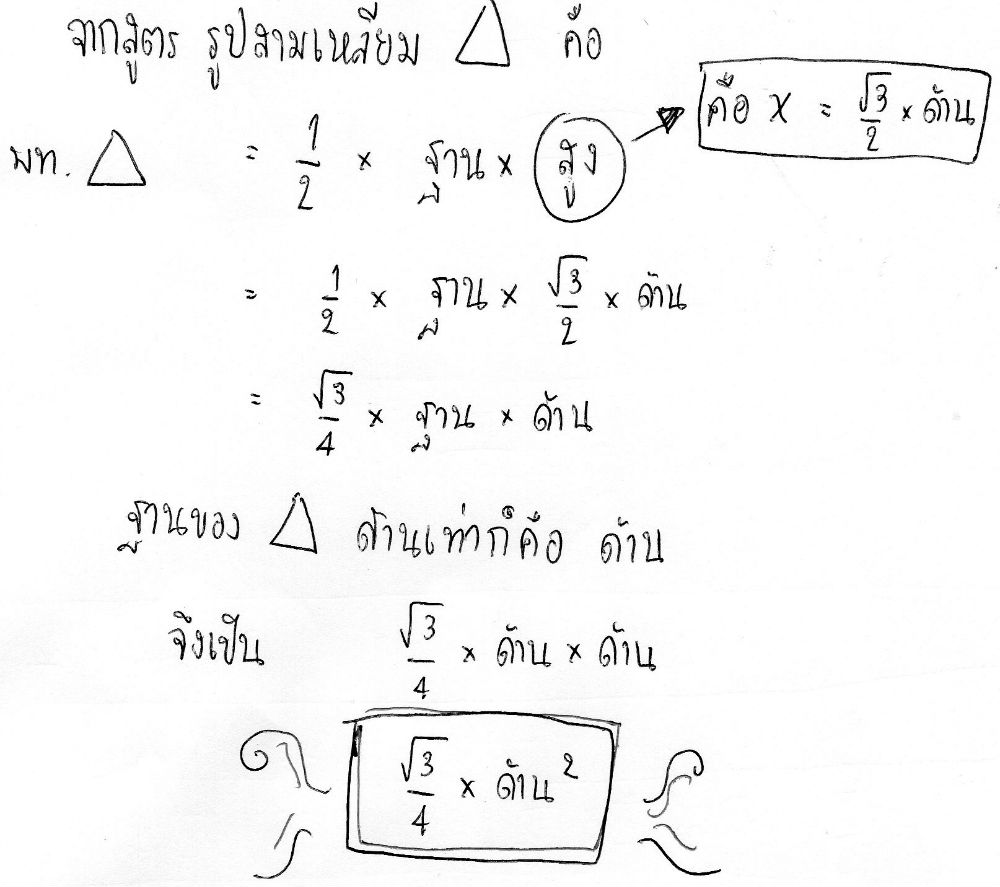 จากสูตร รูปสามเหลี่ยม △ คือ
พท. △ = 1/2 × ฐาน × สูง
คือ x = √3/2 × ด้าน
= 1/2 × ฐาน × √3/2 × ด้าน
= √3/4 × ฐาน × ด้าน
ฐานของ △ ด้านเท่าก็คือ ด้าน
จึงเป็น √3/4 × ด้าน × ด้าน
√3/4 × ด้าน²